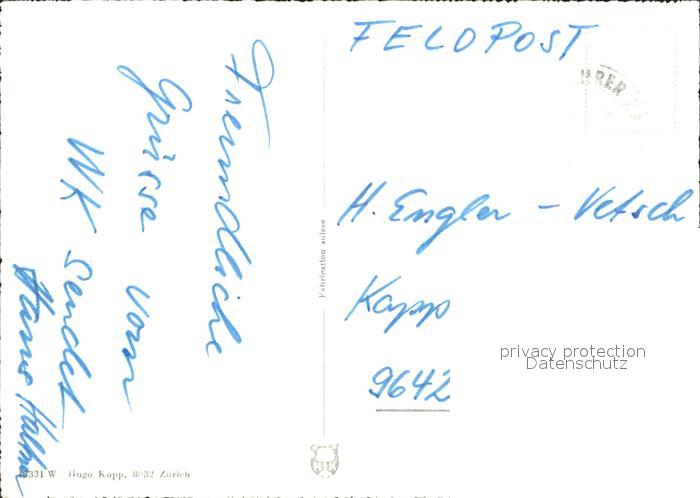 FELDPOST
Freundliche
Grüsse vom
WK sendet
Hans
H. Engler - Vetsch
Kapp
9642
privacy protection
Datenschutz
Fabrication suisse
331 W Hugo Kopp, 8032 Zürich